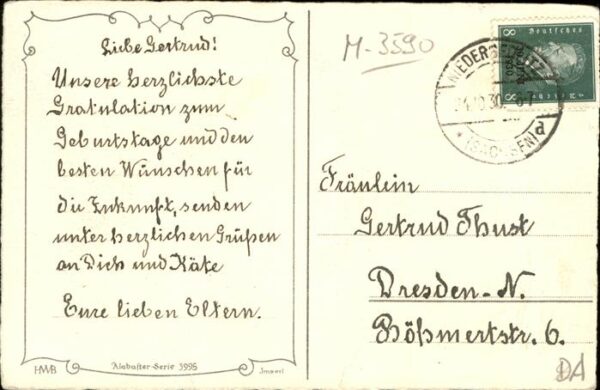 Liebe Gertrud!
Unsere herzlichste
Gratulation zum
Geburtstage und den
besten Wünschen für
die Zukunft, senden
unter herzlichen Grüßen
an Dich und Käte
Eure lieben Eltern.
HWB
Alabaster-Serie 3995
M-3590
8 Deutsches 8
NIEDERSEDLITZ
30
(SACHSEN) d
Fräulein
Gertrud Thust
Dresden-N.
Bößmertstr. 6.
DA